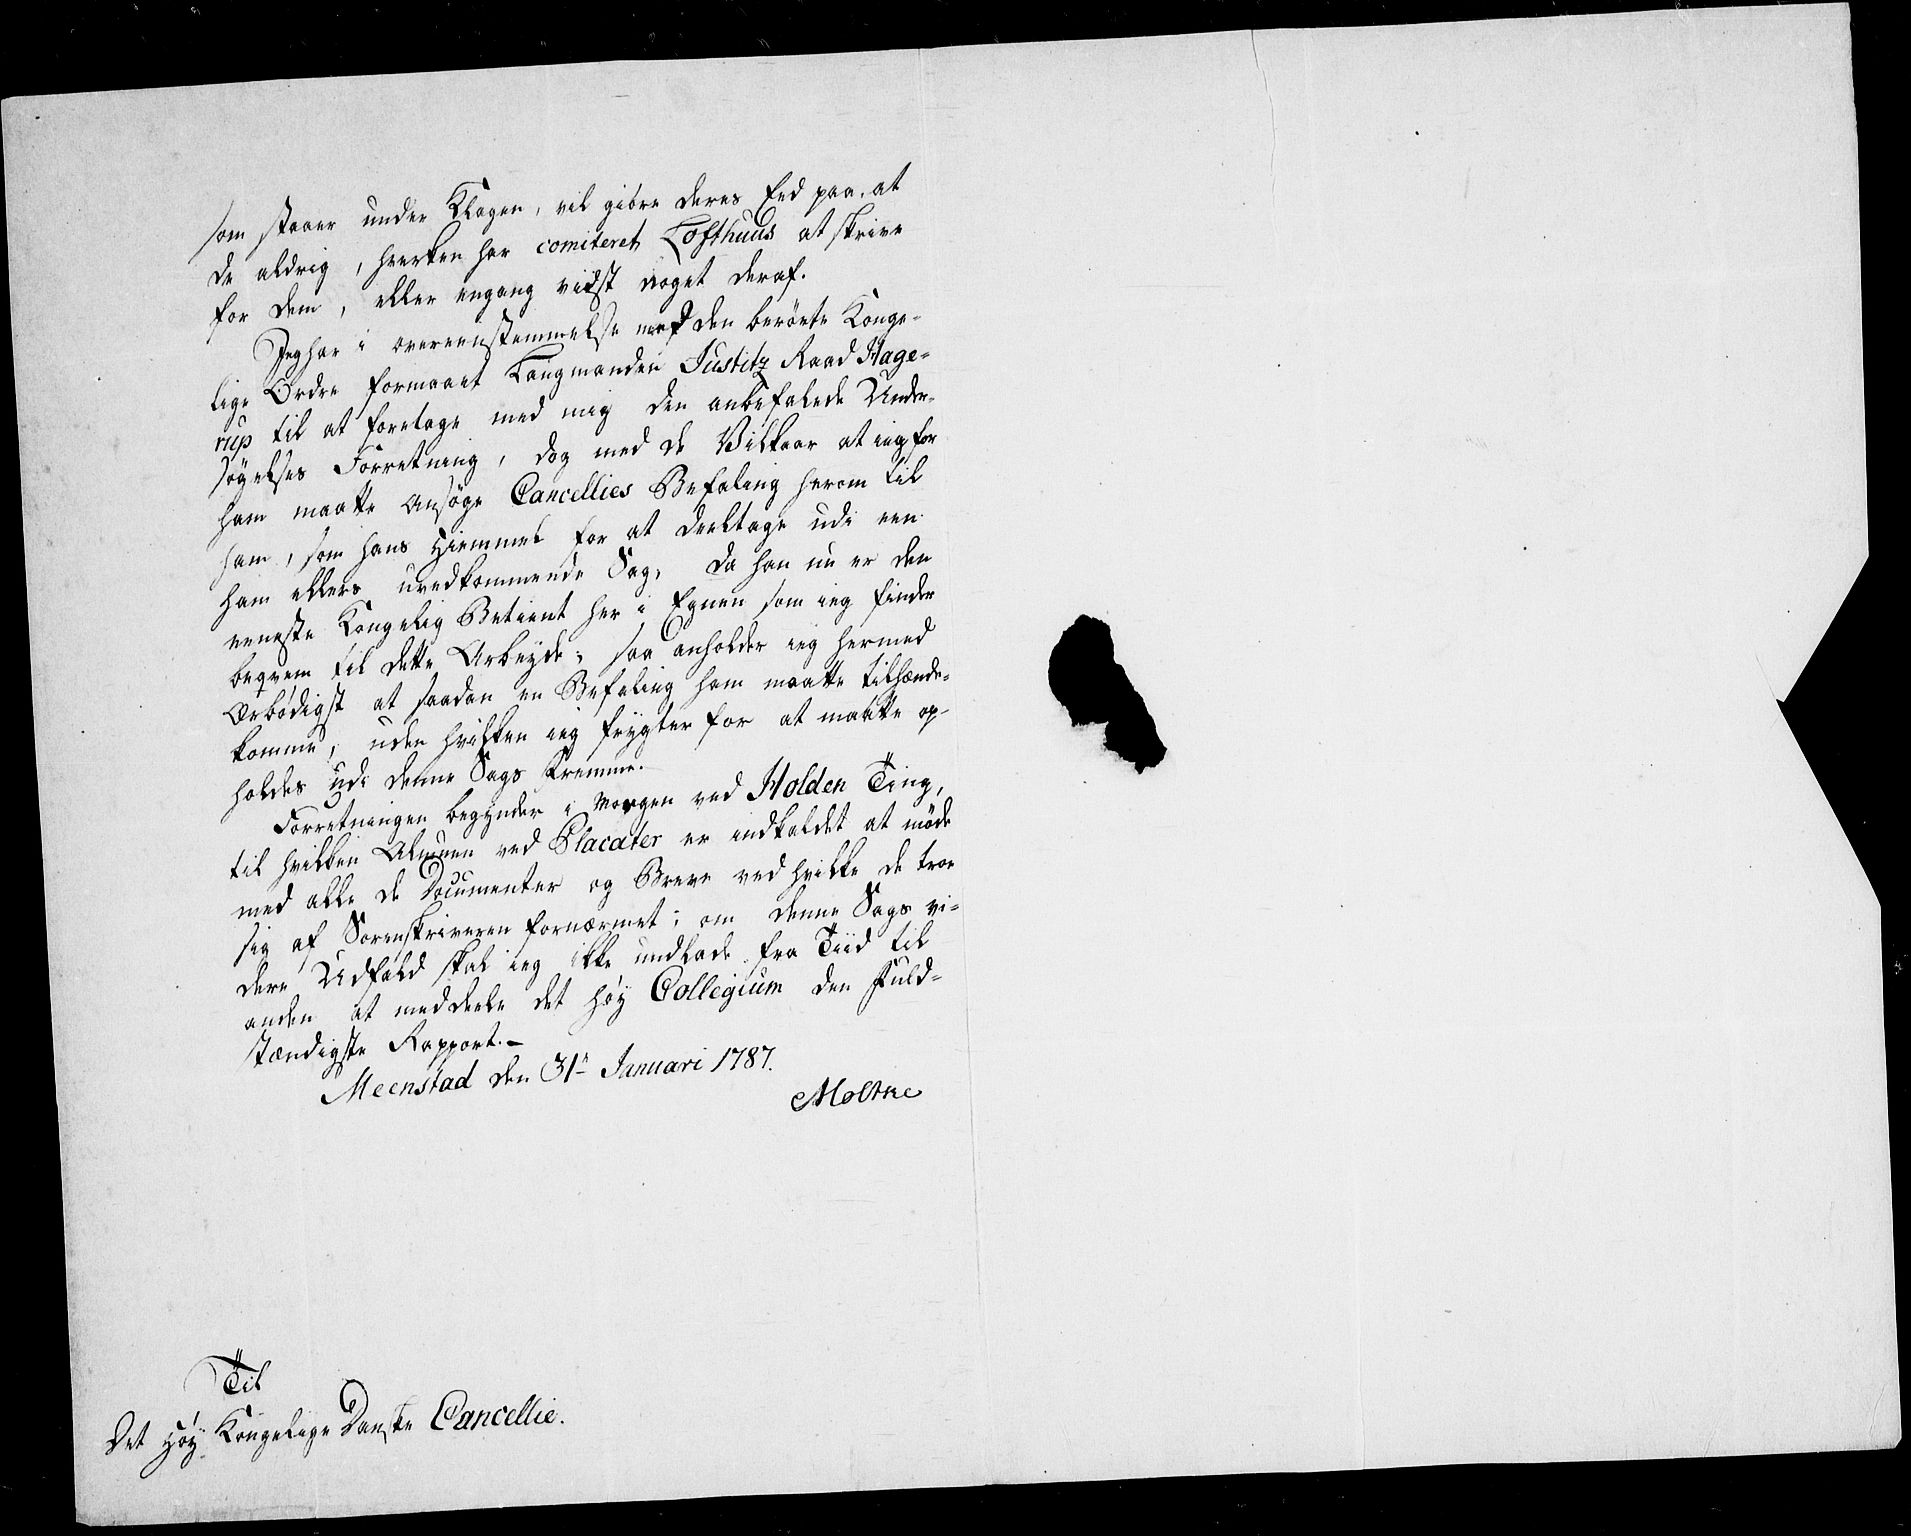 som staaer under Klagen, vil giöre deres Eed paa, at
de aldrig, hverken har comiteret Lofthuus at skrive
for dem, eller engang vidst noget deraf.
Jeg har i overeenstemmelse med den berörte Konge-
lige Ordre formaaet Laugmanden Justitz Raad Hage-
rup til at foretage med mig den anbefalede Under-
søgelses Forretning, dog med de Vilkaar at ieg for
ham maatte Ansöge Cancellies Befaling herom til
ham, som hans Hiemmel for at deeltage udi een
ham ellers uvedkommende Sag, da han nu er den
eeneste Kongelig Betient her i Egnen som ieg finder
beqvem til dette Arbeyde; saa anholder ieg hermed
Ærbödigst at saadan en Befaling ham maatte tilhænde-
komme, uden hvilken ieg frygter for at maatte op-
holdes udi denne Sags Fremme.
Forretningen begynder i Morgen ved Holden Ting,
til hvilken Almuen ved Placater er indkaldet at möde
med alle de Documenter og Breve ved hvilke de troe
sig af Sorenskriveren fornærmet; om denne Sags vi-
dere Udfald skal ieg ikke undlade fra Tiid til
anden at meddeele det höy Collegium den Fuld-
stændigste Rapport.-
Meenstad den 31te Januari 1787.
Moltke
Til
Det Höy Kongelige Danske Cancellie.